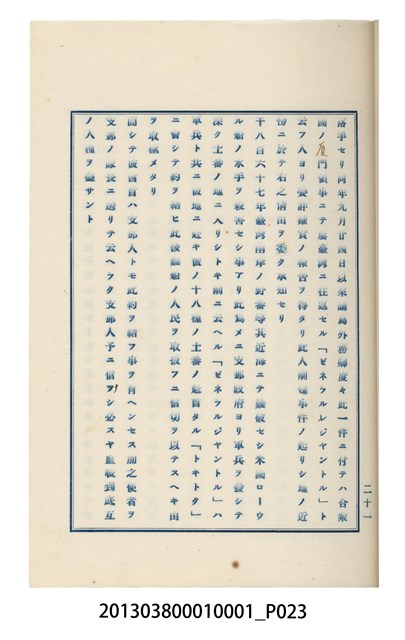 落手セリ同年九月廿四日以来副島外務卿度々此一件ニ付テハ合衆
国ノ厦門領事ニテ屡臺湾ニ往返セル「ゼネラルレジヤントル」ト
云フ人ヨリ要許確實ノ報告ヲ得タリ此人前暴事件ノ起リシ地ノ近
傍ニ於テ右之情由ヲ委ク承知セリ
千八百六十七年臺湾南岸ノ野蕃等其近海ニテ難破セシ米國ローウ
ル船ノ水手ヲ殺害セシ事アリ此為メニ支那政府ヨリ軍兵ヲ發シテ
深ク土番ノ地ニ入リシトキ前ニ云ヘル「ゼネラルレジヤントル」ハ
軍兵ト共ニ彼地ニ近キ彼ノ十八種ノ土番ノ惣酋タル「トキトク」
ニ會シテ約ヲ結ヒ此後難船ノ人民ヲ取扱フニ信切ヲ以テスヘキ由
ヲ取極メタリ
而シテ彼酋首ハ支那人トモ此約ヲ結フ事ヲ肯ヘンセス加之使者ヲ
支那ノ隊長ニ送リテ云ヘラク支那人予ニ信ヲ シ必スヤ血戰到底互
ノ人種ヲ盡サント
二十一
201303800010001_P023